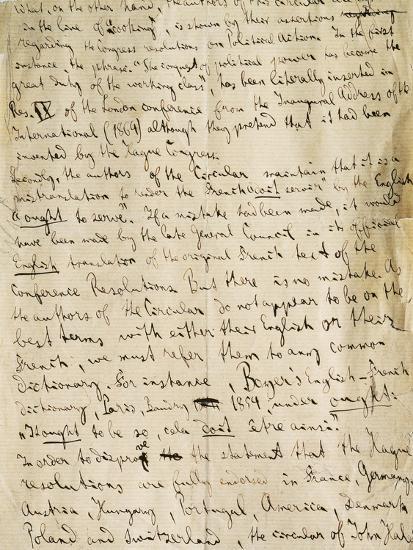 what, on the other hand, the authors of the circular are
in the line of "cooking" is shown by their assertions
regarding the Congress resolutions on Political Action. In the first
instance the phrase: "the conquest of political power has become the
great duty of the working class", has been literally inserted in
Res. IX of the London conference from the Inaugural Address of the
International (1864) although they pretend that it had been
invented by the Hague Congress.
Secondly, the authors of the Circular maintain that it is a
mistranslation to render the French doit servir by the English
ought to serve. If a mistake had been made, it would
have been made by the late General Council in its official
English translation of the original French text of the
Conference Resolutions. But there is no mistake. As
the authors of the Circular do not appear to be on the
best terms with either their English or their
French, we must refer them to any common
dictionary. For instance, Boyer's English-French
dictionary, Paris, Baudry 1854, under ought:
"It ought to be so, cela doit être ainsi."
In order to disprove the statement that the Hague
resolutions are fully endorsed in France, Germany,
Austria, Hungary, Portugal, America, Denmark
Poland and Switzerland, the circular of John Hales